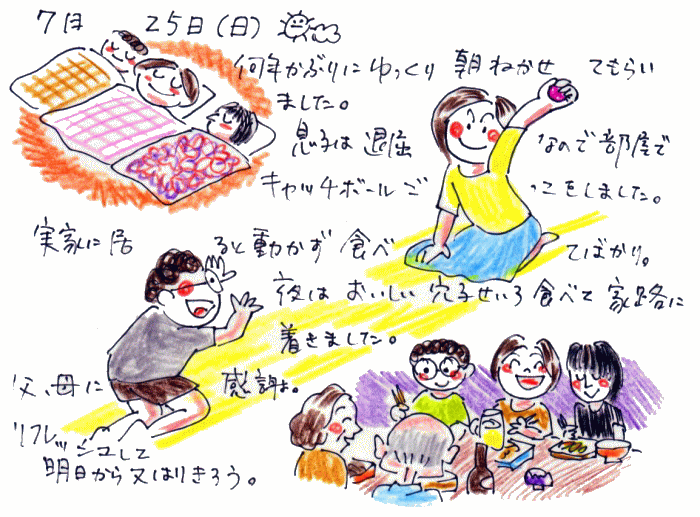 7月 25日(日)
何年かぶりにゆっくり朝ねかせてもらい
ました。
息子は退屈なので部屋で
キャッチボールごっこをしました。
実家に居ると動かず食べてばかり。
夜はおいしい穴子せいろ食べて家路に
着きました。
父、母に感謝。
リフレッシュして
明日から又はりきろう。